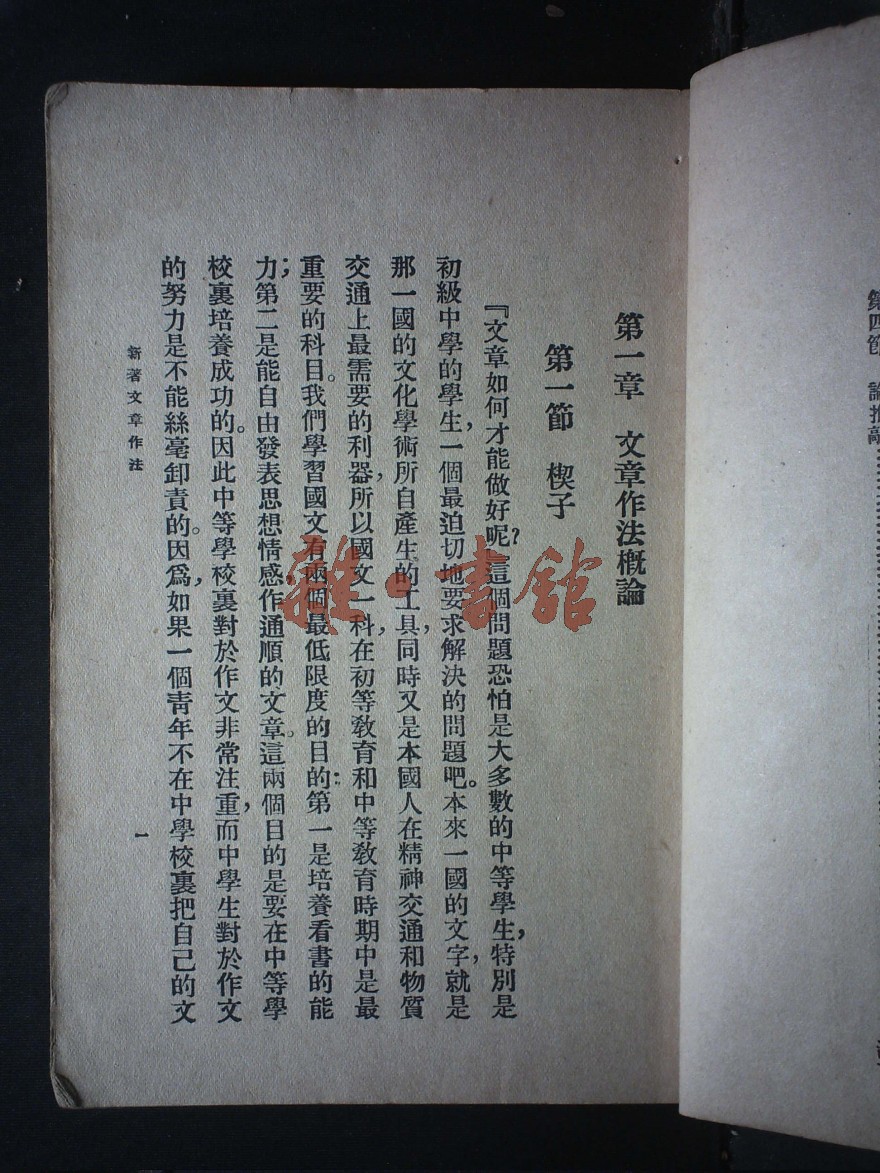 第四節 論推敲
第一章 文章作法概論
第一節 楔子
『文章如何才能做好呢?』這個問題恐怕是大多數的中等學生,特別是
初級中學的學生,一個最迫切地要求解決的問題吧。本來一國的文字,就是
那一國的文化學術所自產生的工具,同時又是本國人在精神交通和物質
交通上最需要的利器,所以國文一科,在初等教育和中等教育時期中是最
重要的科目。我們學習國文有兩個最低限度的目的:第一是培養看書的能
力;第二是能自由發表思想情感,作通順的文章。這兩個目的是要在中等學
校裏培養成功的。因此中等學校裏對於作文非常注重,而中學生對於作文
的努力是不能絲毫卸責的。因爲,如果一個青年不在中學校裏把自己的文
新著文章作法
一
雜·書館